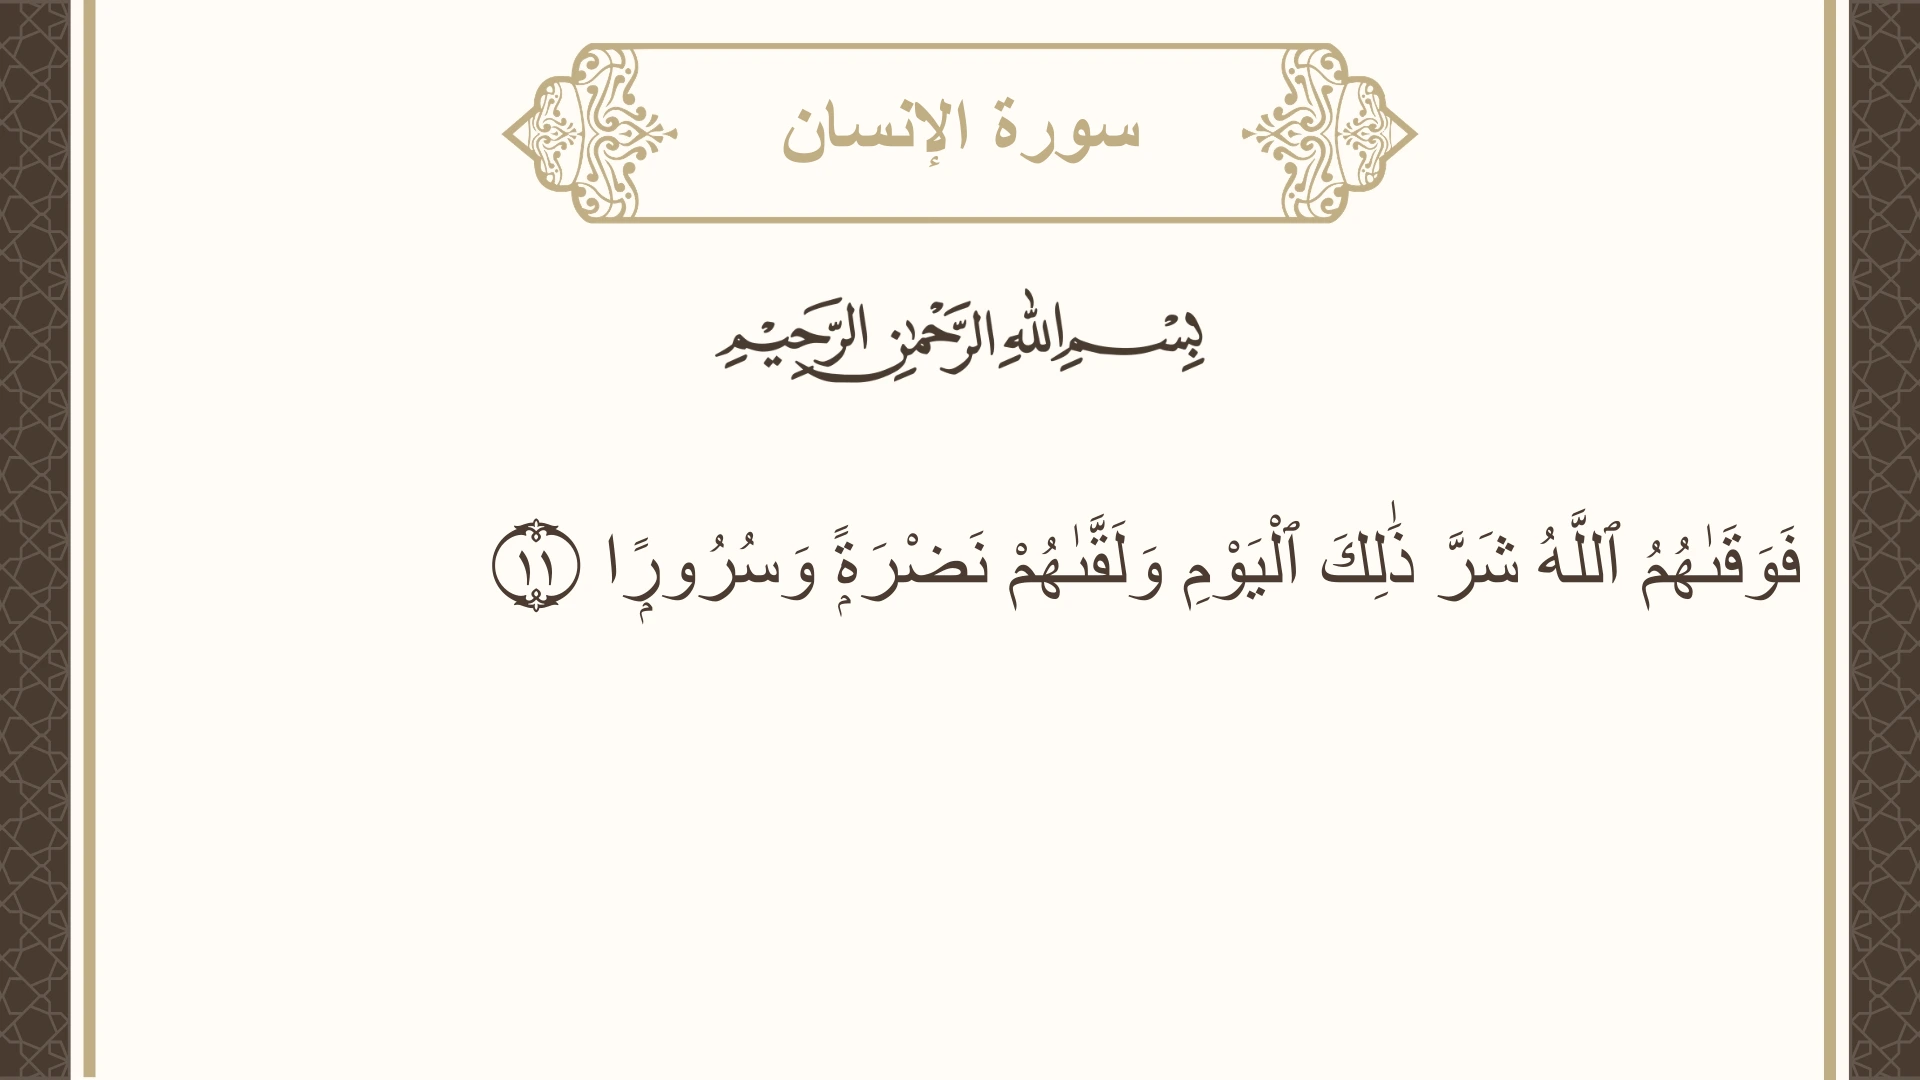 سورة الإنسان
بِسْمِ اللهِ الرَّحْمٰنِ الرَّحِيْمِ
فَوَقَىٰهُمُ ٱللَّهُ شَرَّ ذَٰلِكَ ٱلْيَوْمِ وَلَقَّىٰهُمْ نَضْرَةًۭ وَسُرُورًۭا ١١